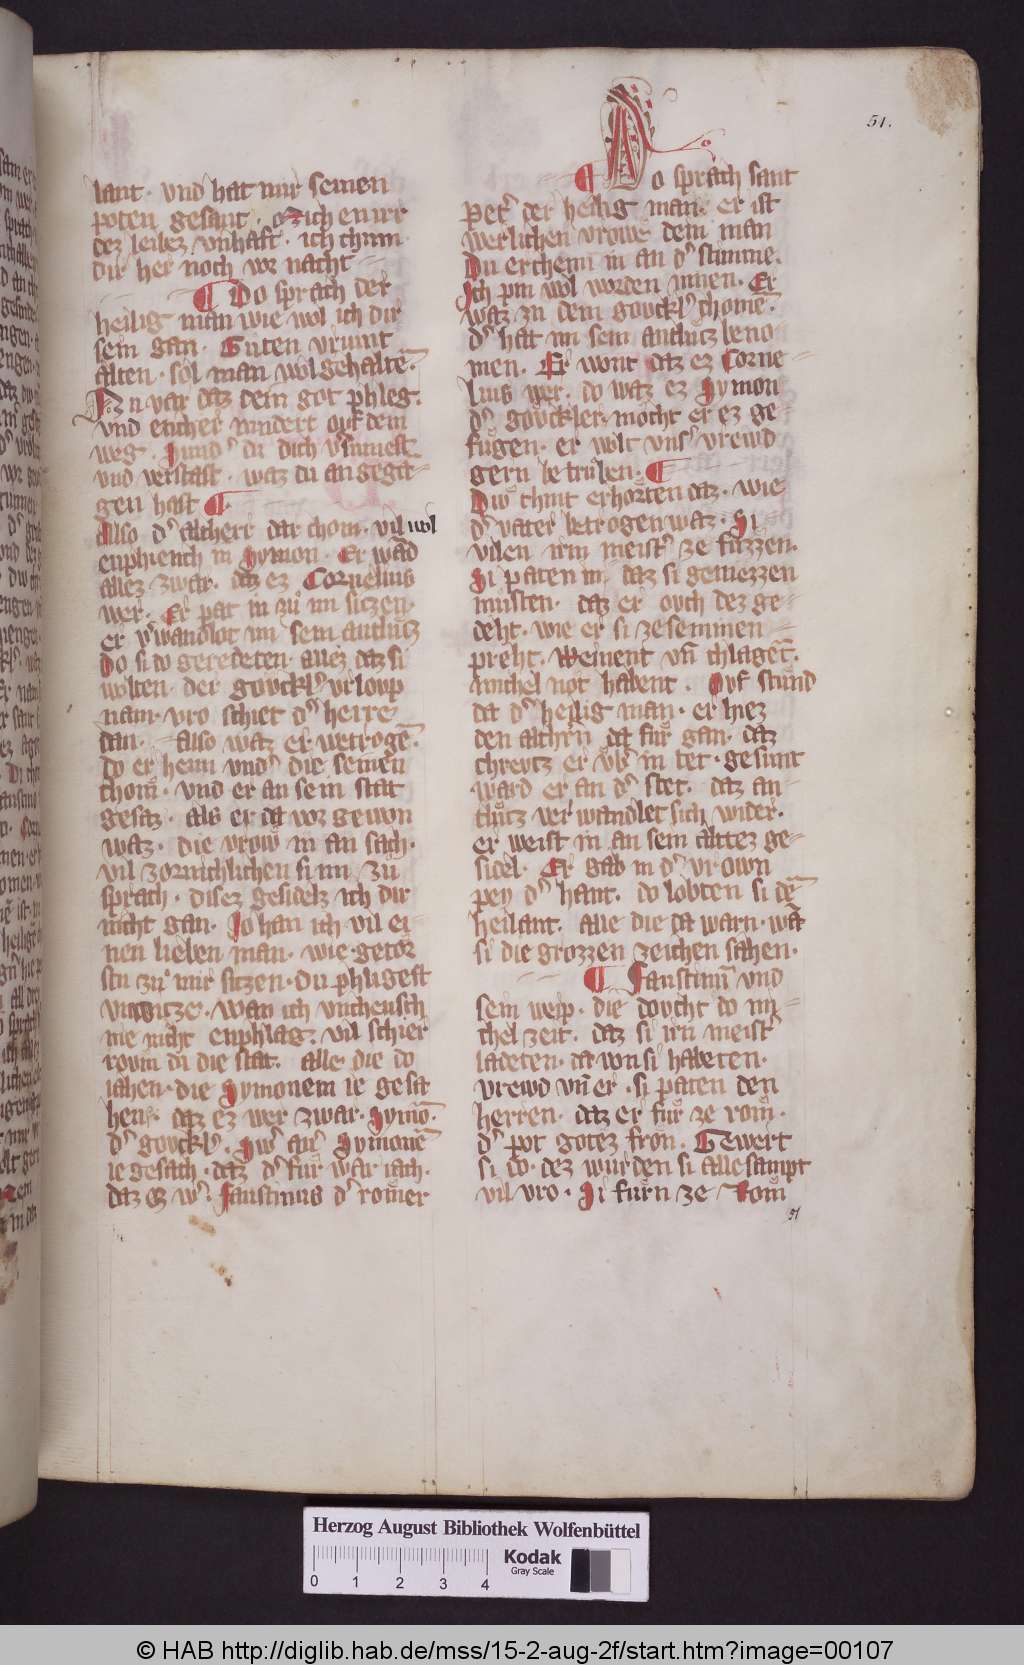 51.
lant · vnd hat mir seinen
poten gesant · Zich en irr
dez leibez vnhaft · ich chum
dir her noch vor nacht
¶ Do sprach der
heilig man wie wol ich dir
sein gan · Guten vriunt
alten · sol man wol gehaltē·
Nu var daz dein got phleg·
vnd encher nindert ouf dem
weg · dich vsinnest
vnd verstast · waz du an gegan
gen hast ¶
Also dˢ altherr dar chom · vil wol
enphiench in Symon · Er wād
allez zwar · daz ez Cornelius
wer · Er pat in zů im siczen·
er vˢwandlot im sein antlutz
Do si do geredeten · allez daz si
wolten · der gouckl' vrloup
nam · vro schiet dˢ herre
dan · also waz er vetrogē·
do er heim vndˢ die seinen
chom · vnd er an sein stat
gesaz · als er da vor gewon
waz · die vrow in an sach ·
vil zornichlichen si im zů
sprach · disez gesidelz ich dir
nicht gan · Jo han ich vil ei
nen lieben man · wie getor
stu zů mir siczen · Du phligest
vnwitze · wan ich vncheusch
nie nicht enphlag · vil schier
roum du die stat · alle die do
iahen · die Symonem ie gesa
hen · daz ez wer zwar · Symō·
dˢ gouckl' · Swˢ anˢ Symonē
ie gesach · daz dˢ fur war iach ·
daz Ez wˢ · Faustinus dˢ romer
¶ Do sprach sant
Petˢ der heilig man · er ist
werlichen vrowe dem man
Du erchenn in an dˢ stimme ·
Ich pin wol worden innen · Er
waz zu dem gouckl' chomē·
dˢ hat im sein antlutz beno
men · Er wont daz ez Corne
lius wer · do waz ez Symon
dˢ gouckler · mocht er ez ge
fugen · er wolt vnsˢ vrewd
gern betruben · ¶
Diw chint erhorten daz · wie
dˢ vater betrogen waz · Si
vilen irm meistˢ ze fuzzen ·
Si paten in · daz si geniezzen
musten · daz er ouch dez ge
deht · wie er si ze semmen
preht · Weinent vn̄ chlagēt·
michel not habent · Ovf stund
da dˢ heilig man · er hiez
den althern da fur gan · daz
chreutz er vbˢ in tet · gesunt
ward er an dˢ stet · daz an
tlutz verwandlet sich wider ·
er weist in an sein altez ge
sidel · Er gab in dˢ vrown
pey dˢ hant · do lobten si dē
heilant · alle die da warn · wā
si die grozzen zeichen sahen ·
¶ Faustiniā vnd
sein weip · die doucht do mi
chel zeit · daz si irn meistˢ
ladeten · da von si habeten ·
vrewd vn̄ er · si paten den
herren · daz er fur ze rom ·
dˢ pot gotez fron · Gewert
si do · dez wurden si alle sampt
vil vro · Si furn ze Rom
51
Herzog August Bibliothek Wolfenbüttel
0 1 2 3 4
Kodak
Gray Scale
© HAB http://diglib.hab.de/mss/15-2-aug-2f/start.htm?image=00107